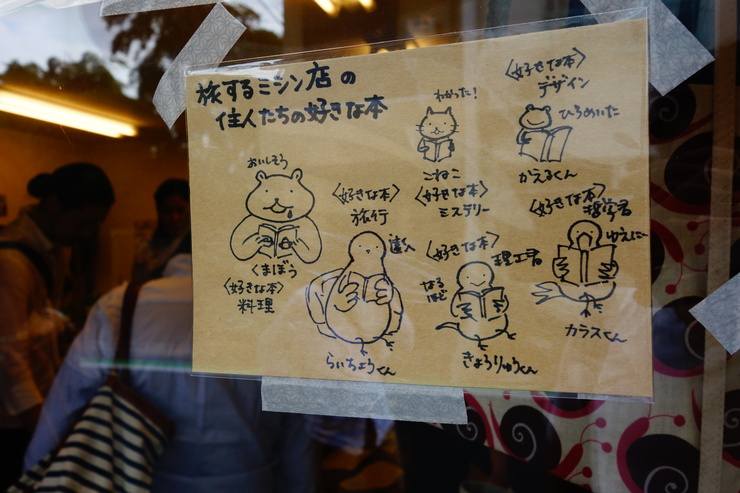 旅するミシン店の
住人たちの好きな本
おいしそう
くまぼう
〈好きな本〉
料理
〈好きな本〉
旅行
達人
らいちょうくん
わかった!
こねこ
〈好きな本〉
ミステリー
〈好きな本〉
理工君
なる
ほど
きょうりゅうくん
〈好きな本〉
デザイン
ひらめいた
かえるくん
〈好きな本〉
哲学君
ゆえに…
カラスくん